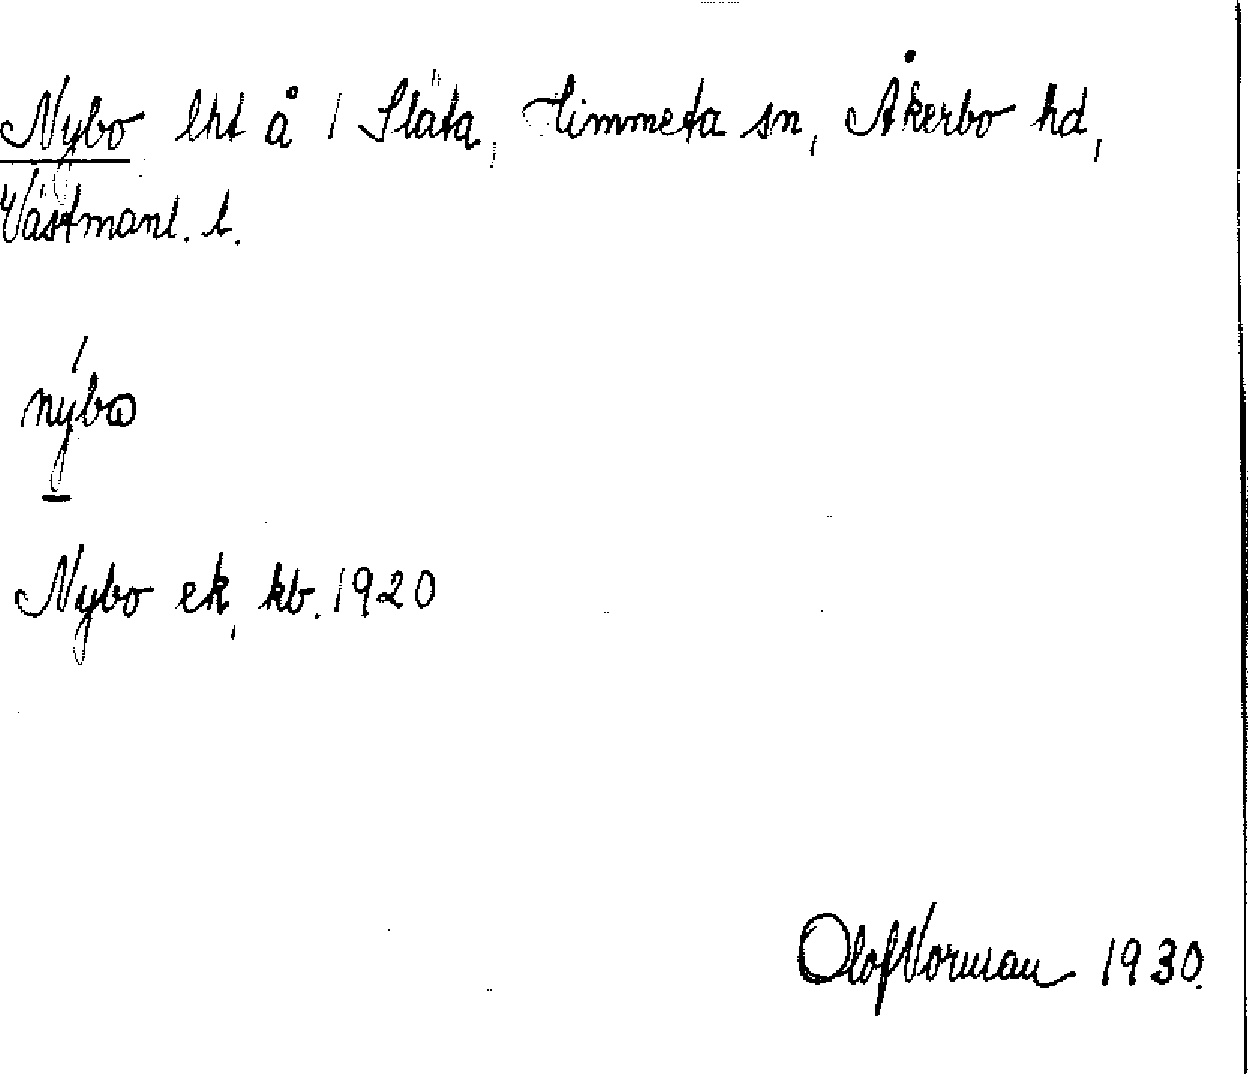 Nybo lht å 1 Släta, Himmeta sn, Åkerbo hd,
Västmanl. l.
nýbo
Nybo ek, kb. 1920
Olof Norman 1930.